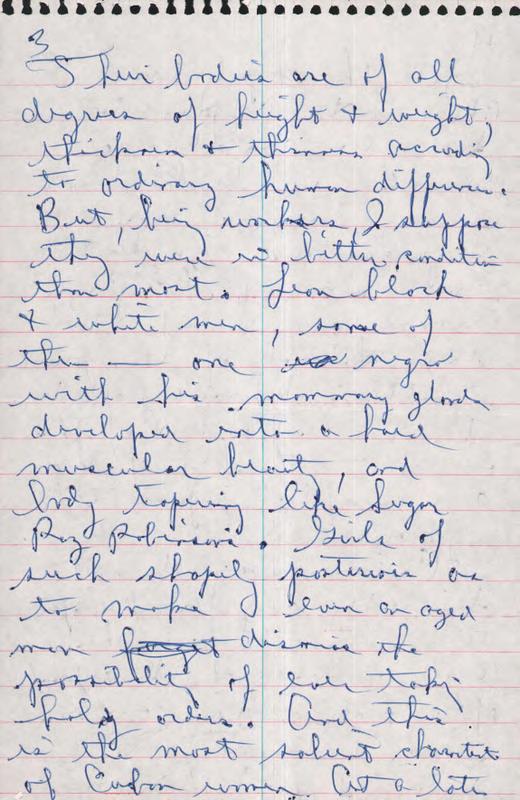 3
Their bodies are of all
degrees of height & weight,
thickness & thinness according
to ordinary human difference.
But, being workers, I suppose
they were in better condition
than most. Lean black
& white men, some of
them — one negro
with his mammary glands
developed into a hard
muscular beauty, and
body tapering like Sugar
Ray Robinson's. Girls of
such shapely posteriors as
to make even an aged
man forget dismiss the
possibility of ever taking
holy orders. And this
is the most salient character
of Cuban women. At a later